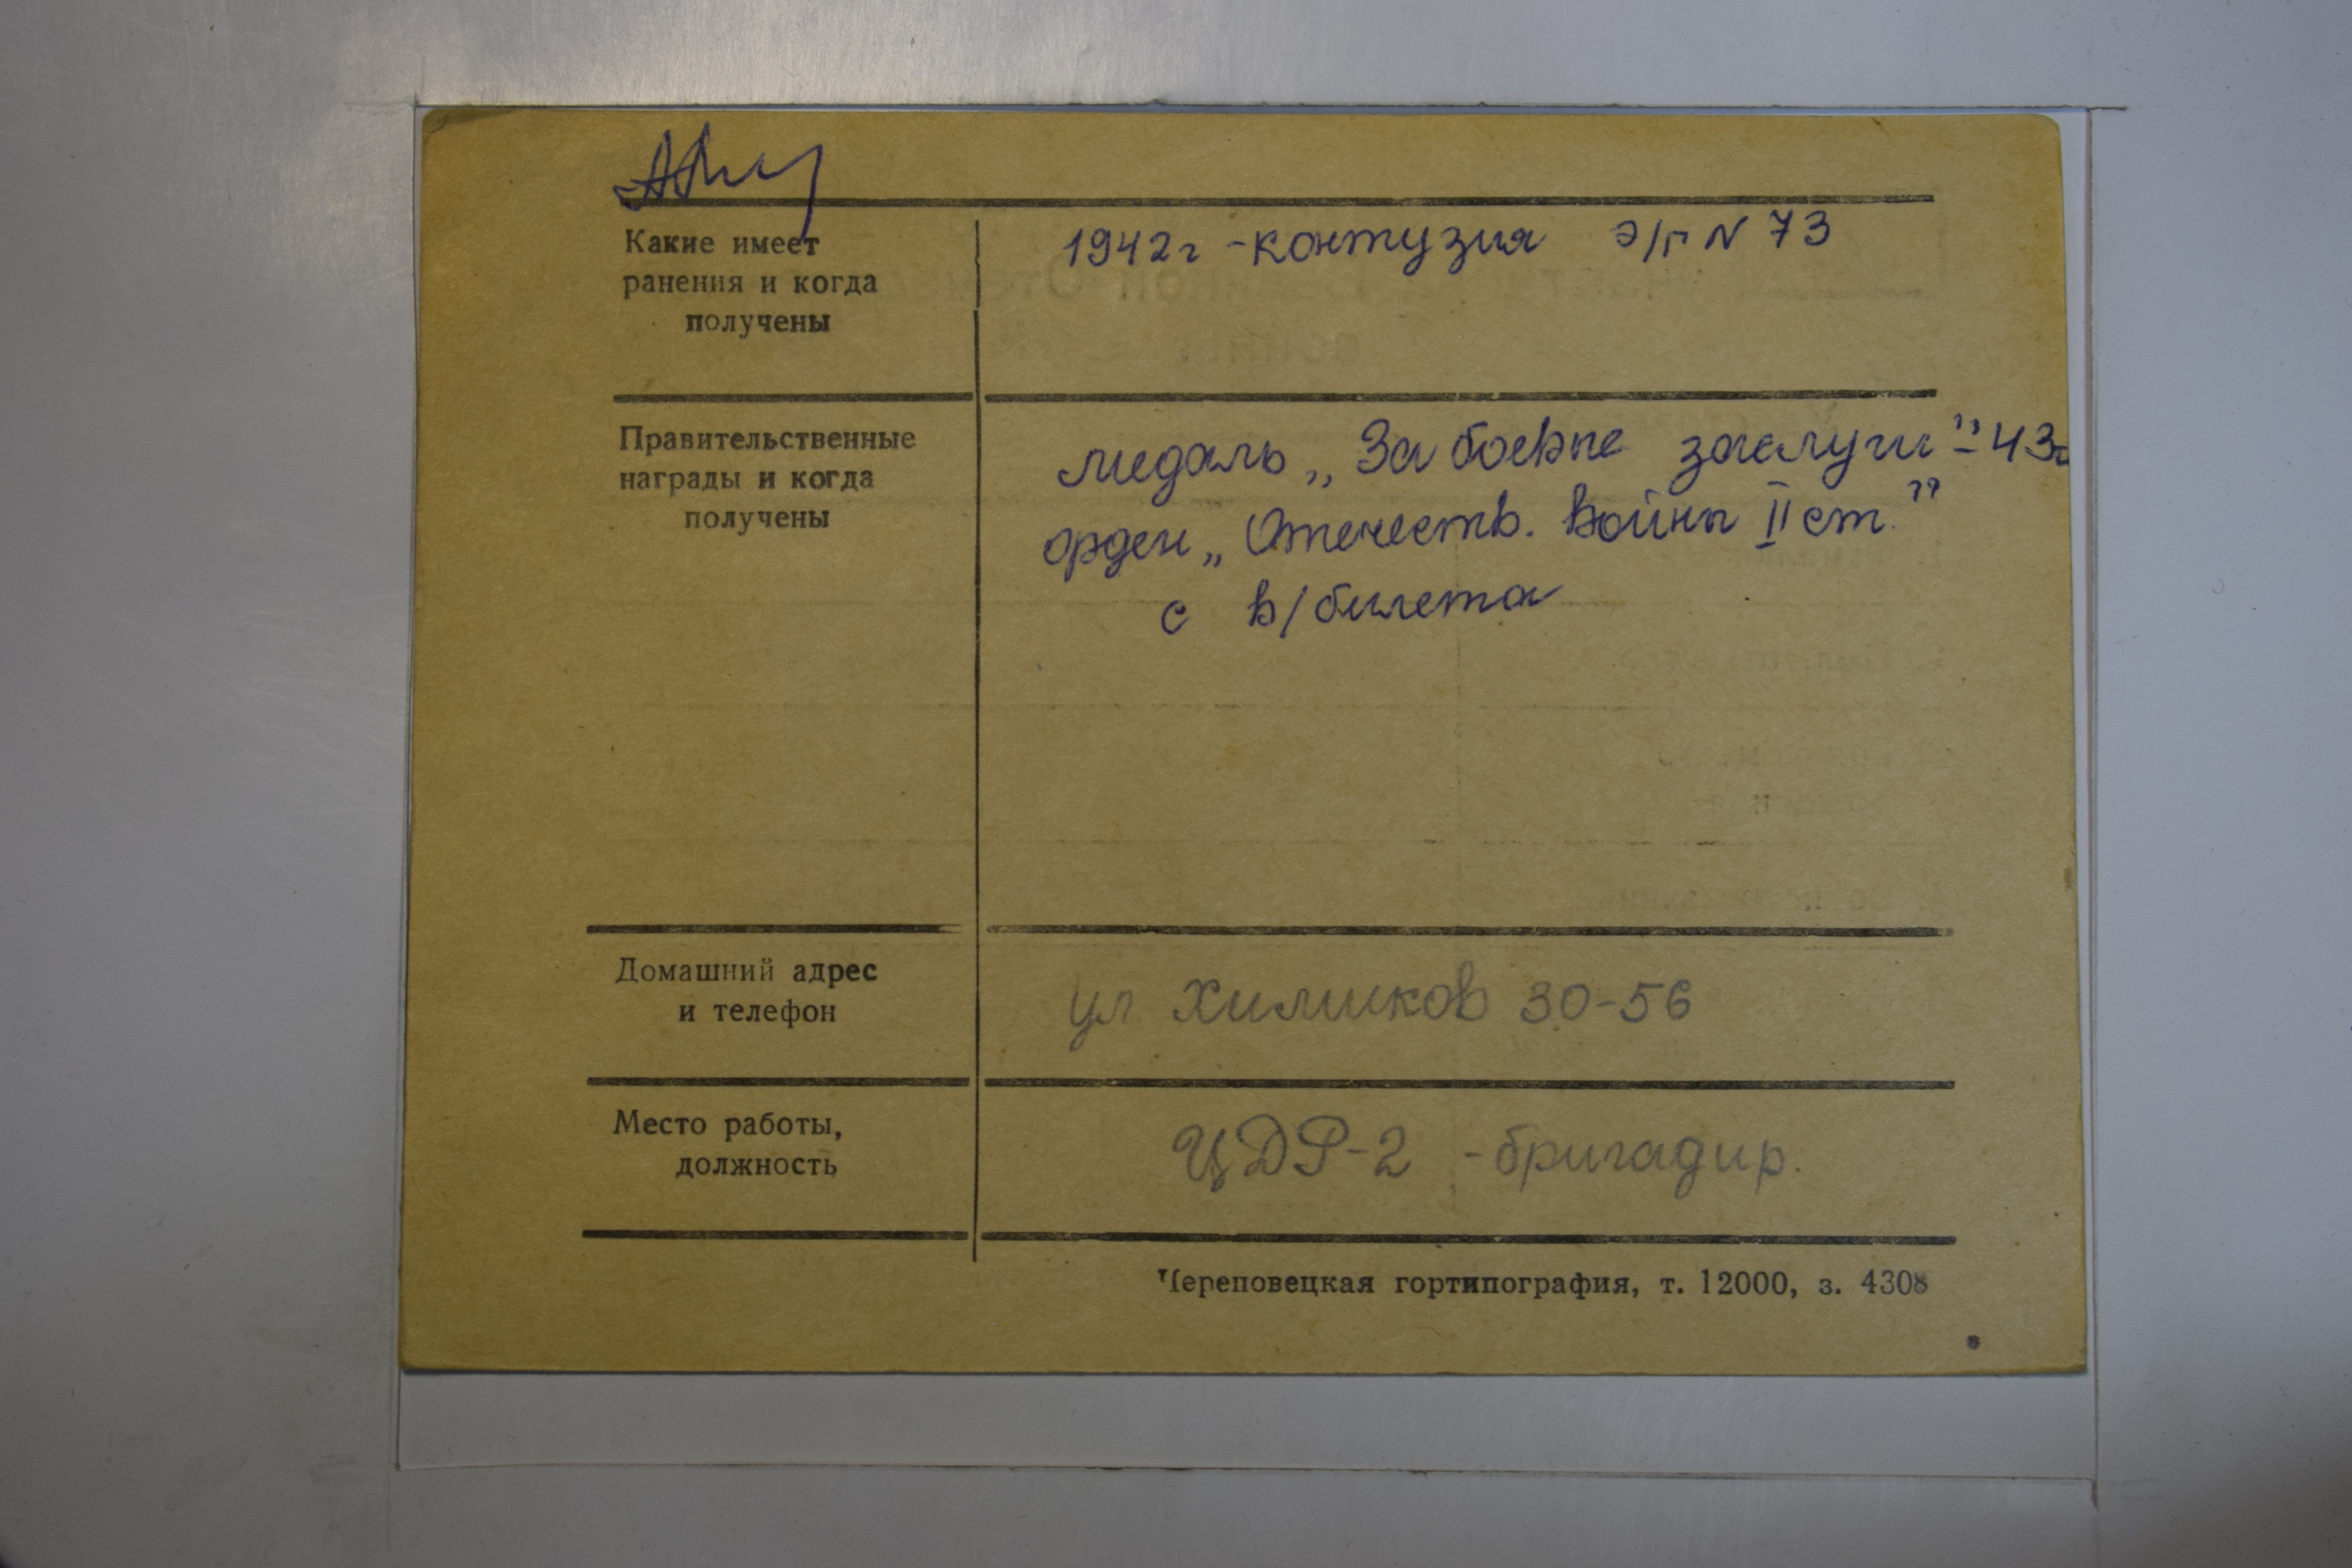 Какие имеет
ранения и когда
получены
1942г - контузия э/г N 73
Правительственные
награды и когда
получены
медаль „За боевые заслуги" - 43г
орден „Отечеств. Войны II ст."
с в/билета
Домашний адрес
и телефон
ул Химиков 30-56
Место работы,
должность
ЦДР-2 - бригадир.
Череповецкая гортипография, т. 12000, з. 4308